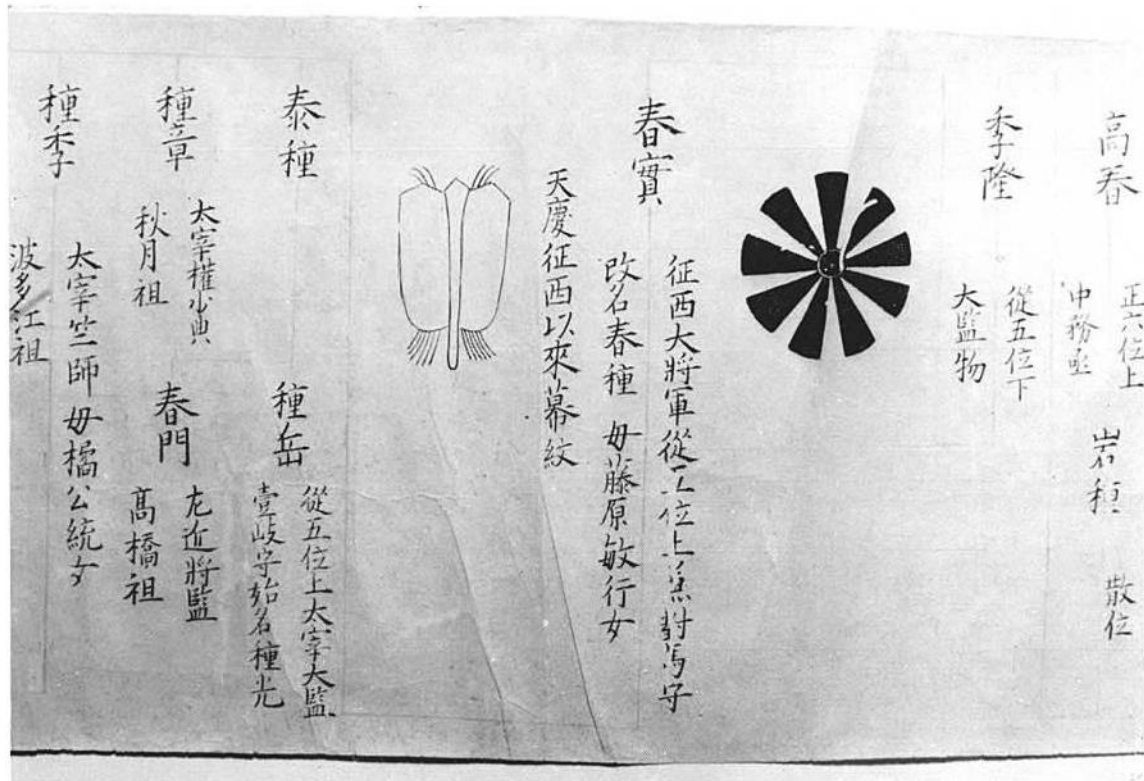 高春
正六位上
中務丞
岩種
散位
季隆
從五位下
大監物
春實
征西大將軍從五位上兼對馬守
改名春種 母藤原敏行女
天慶征西以來幕紋
泰種
種岳
從五位上太宰大監
壹岐守始名種光
種章
太宰權少典
秋月祖
春門
左近將監
高橋祖
種季
太宰竺師 母橘公統女
波多江祖